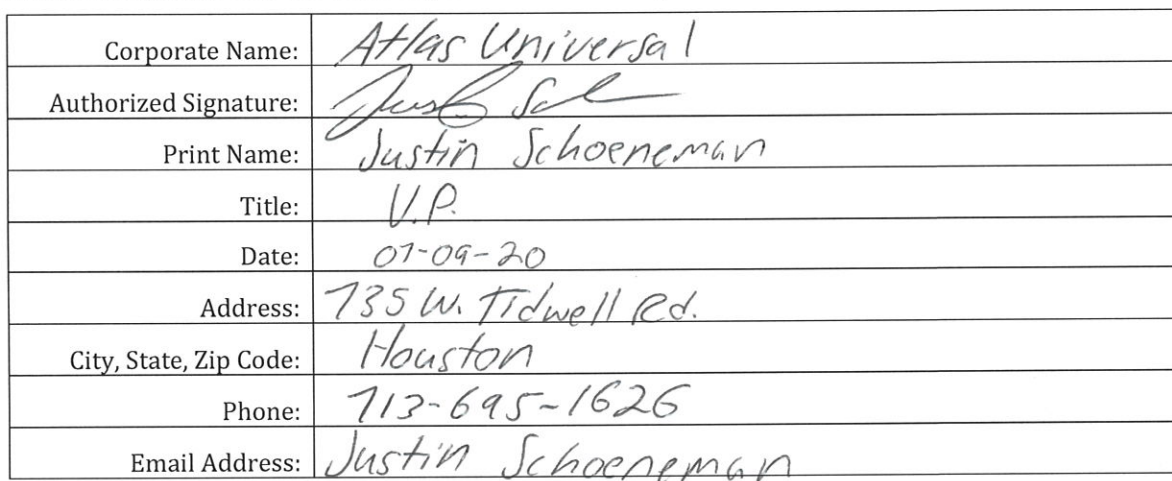 Corporate Name: Atlas Universal
Authorized Signature:
Print Name: Justin Schoeneman
Title: V.P.
Date: 07-09-20
Address: 735 W. Tidwell Rd.
City, State, Zip Code: Houston
Phone: 713-695-1626
Email Address: Justin Schoeneman